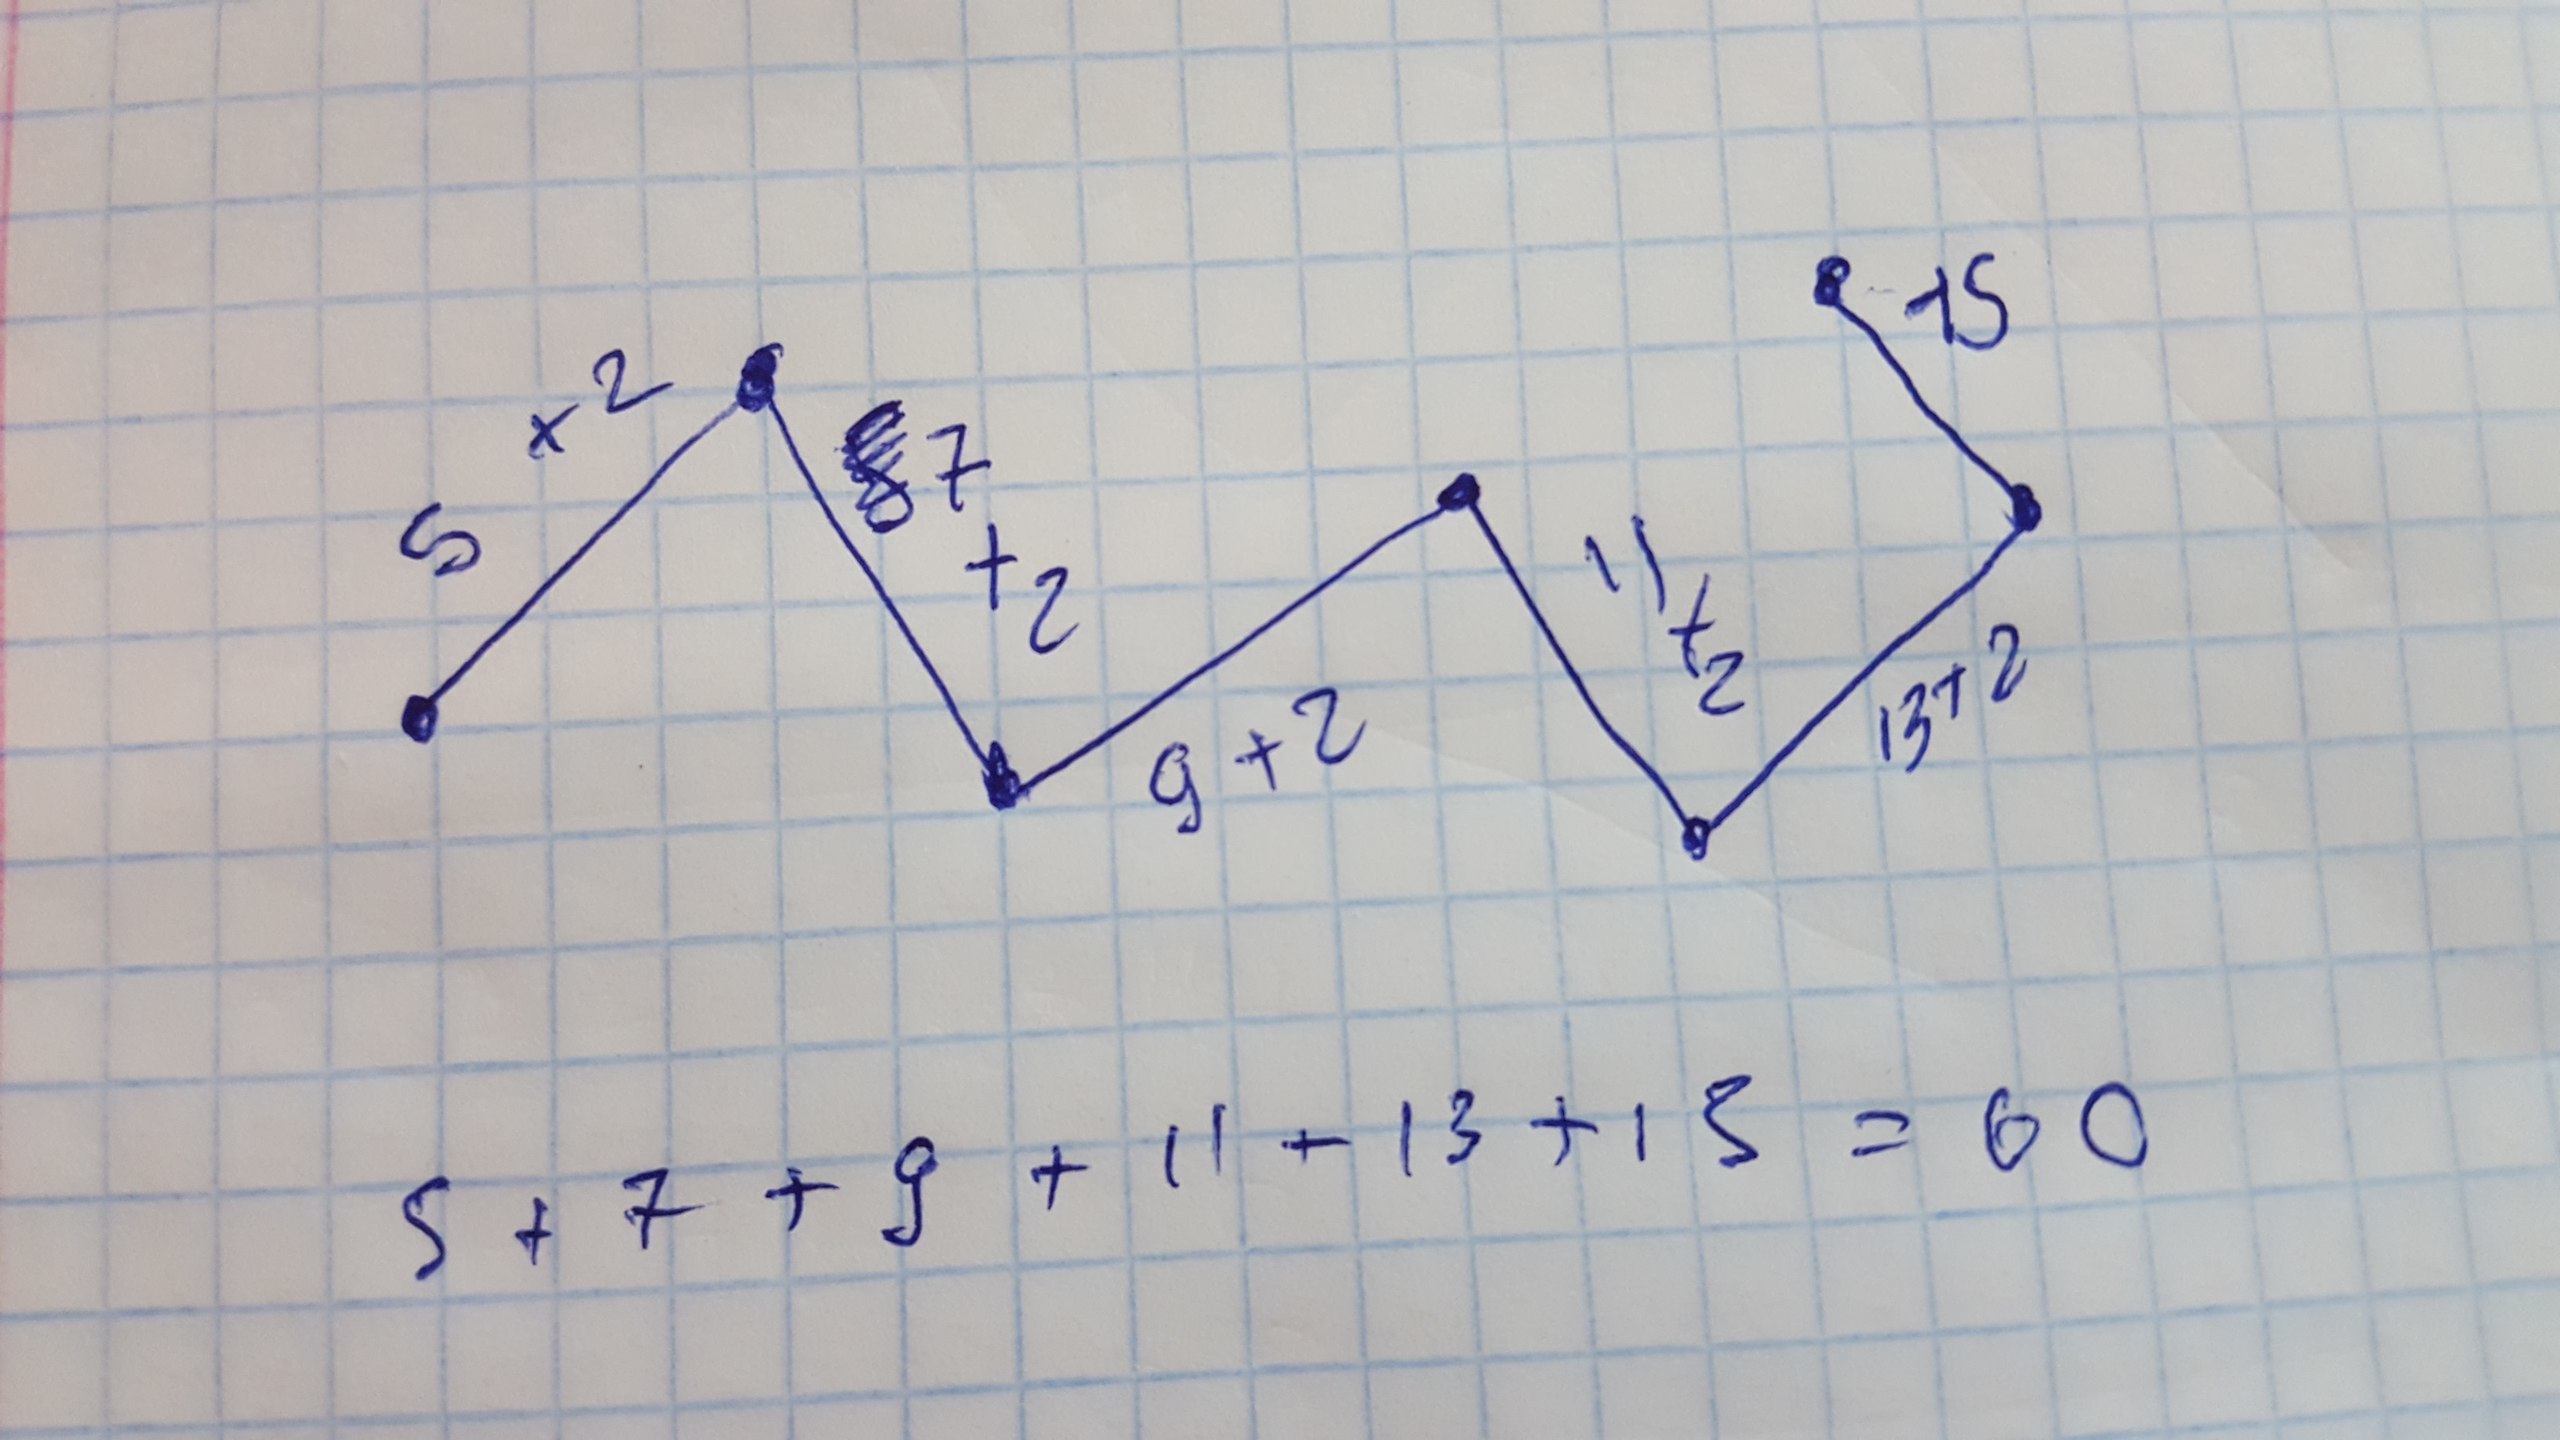 5 +2
7 +2
9 + 2
11 +2
13 + 2
15
5 + 7 + 9 + 11 + 13 + 15 = 60